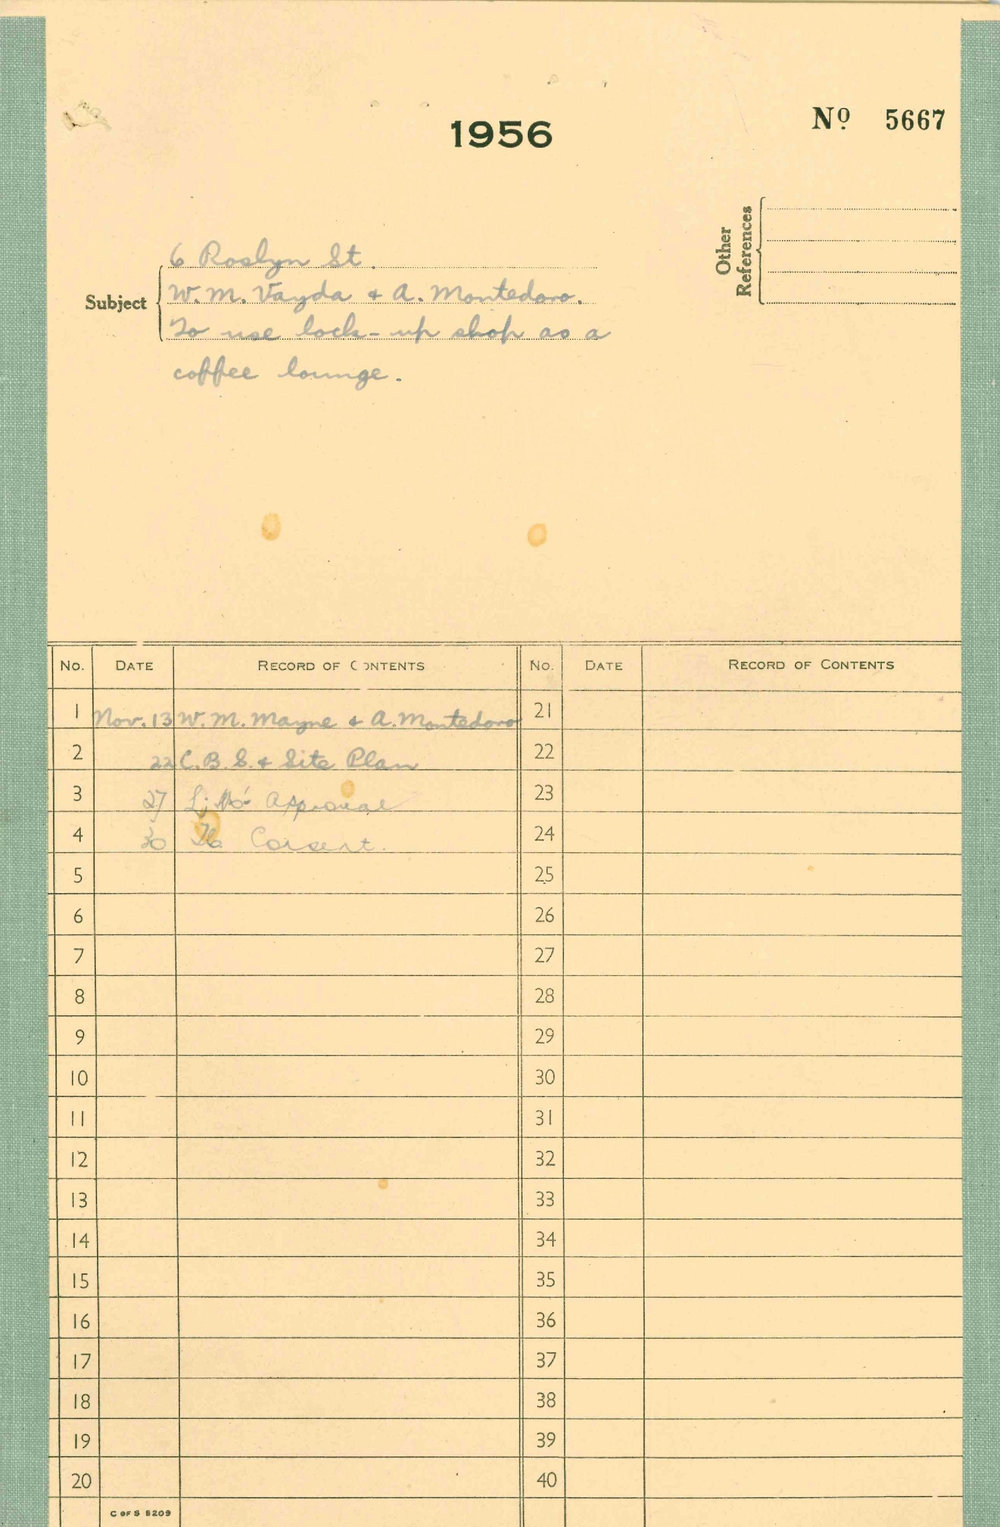 1956
Nº 5667
Other
References
Subject
6 Roslyn St.
W. M. Vayda & A. Montedoro.
To use lock-up shop as a
coffee lounge.
No. DATE RECORD OF CONTENTS No. DATE RECORD OF CONTENTS
1 Nov. 13 W. M. Mayne & A. Montedoro 21
2 22 C.B.S. & Site Plan 22
3 27 Approval 23
4 30 Consent. 24
5 25
6 26
7 27
8 28
9 29
10 30
11 31
12 32
13 33
14 34
15 35
16 36
17 37
18 38
19 39
20 40
C OF S 5209